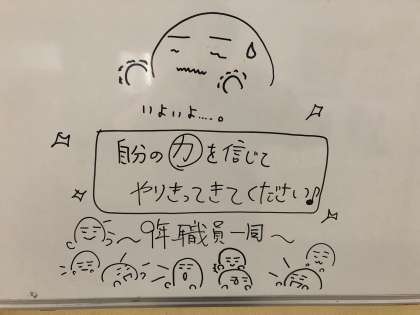 いよいよ....。
自分の力を信じて
やりきってきてください♪
〜9年職員一同〜